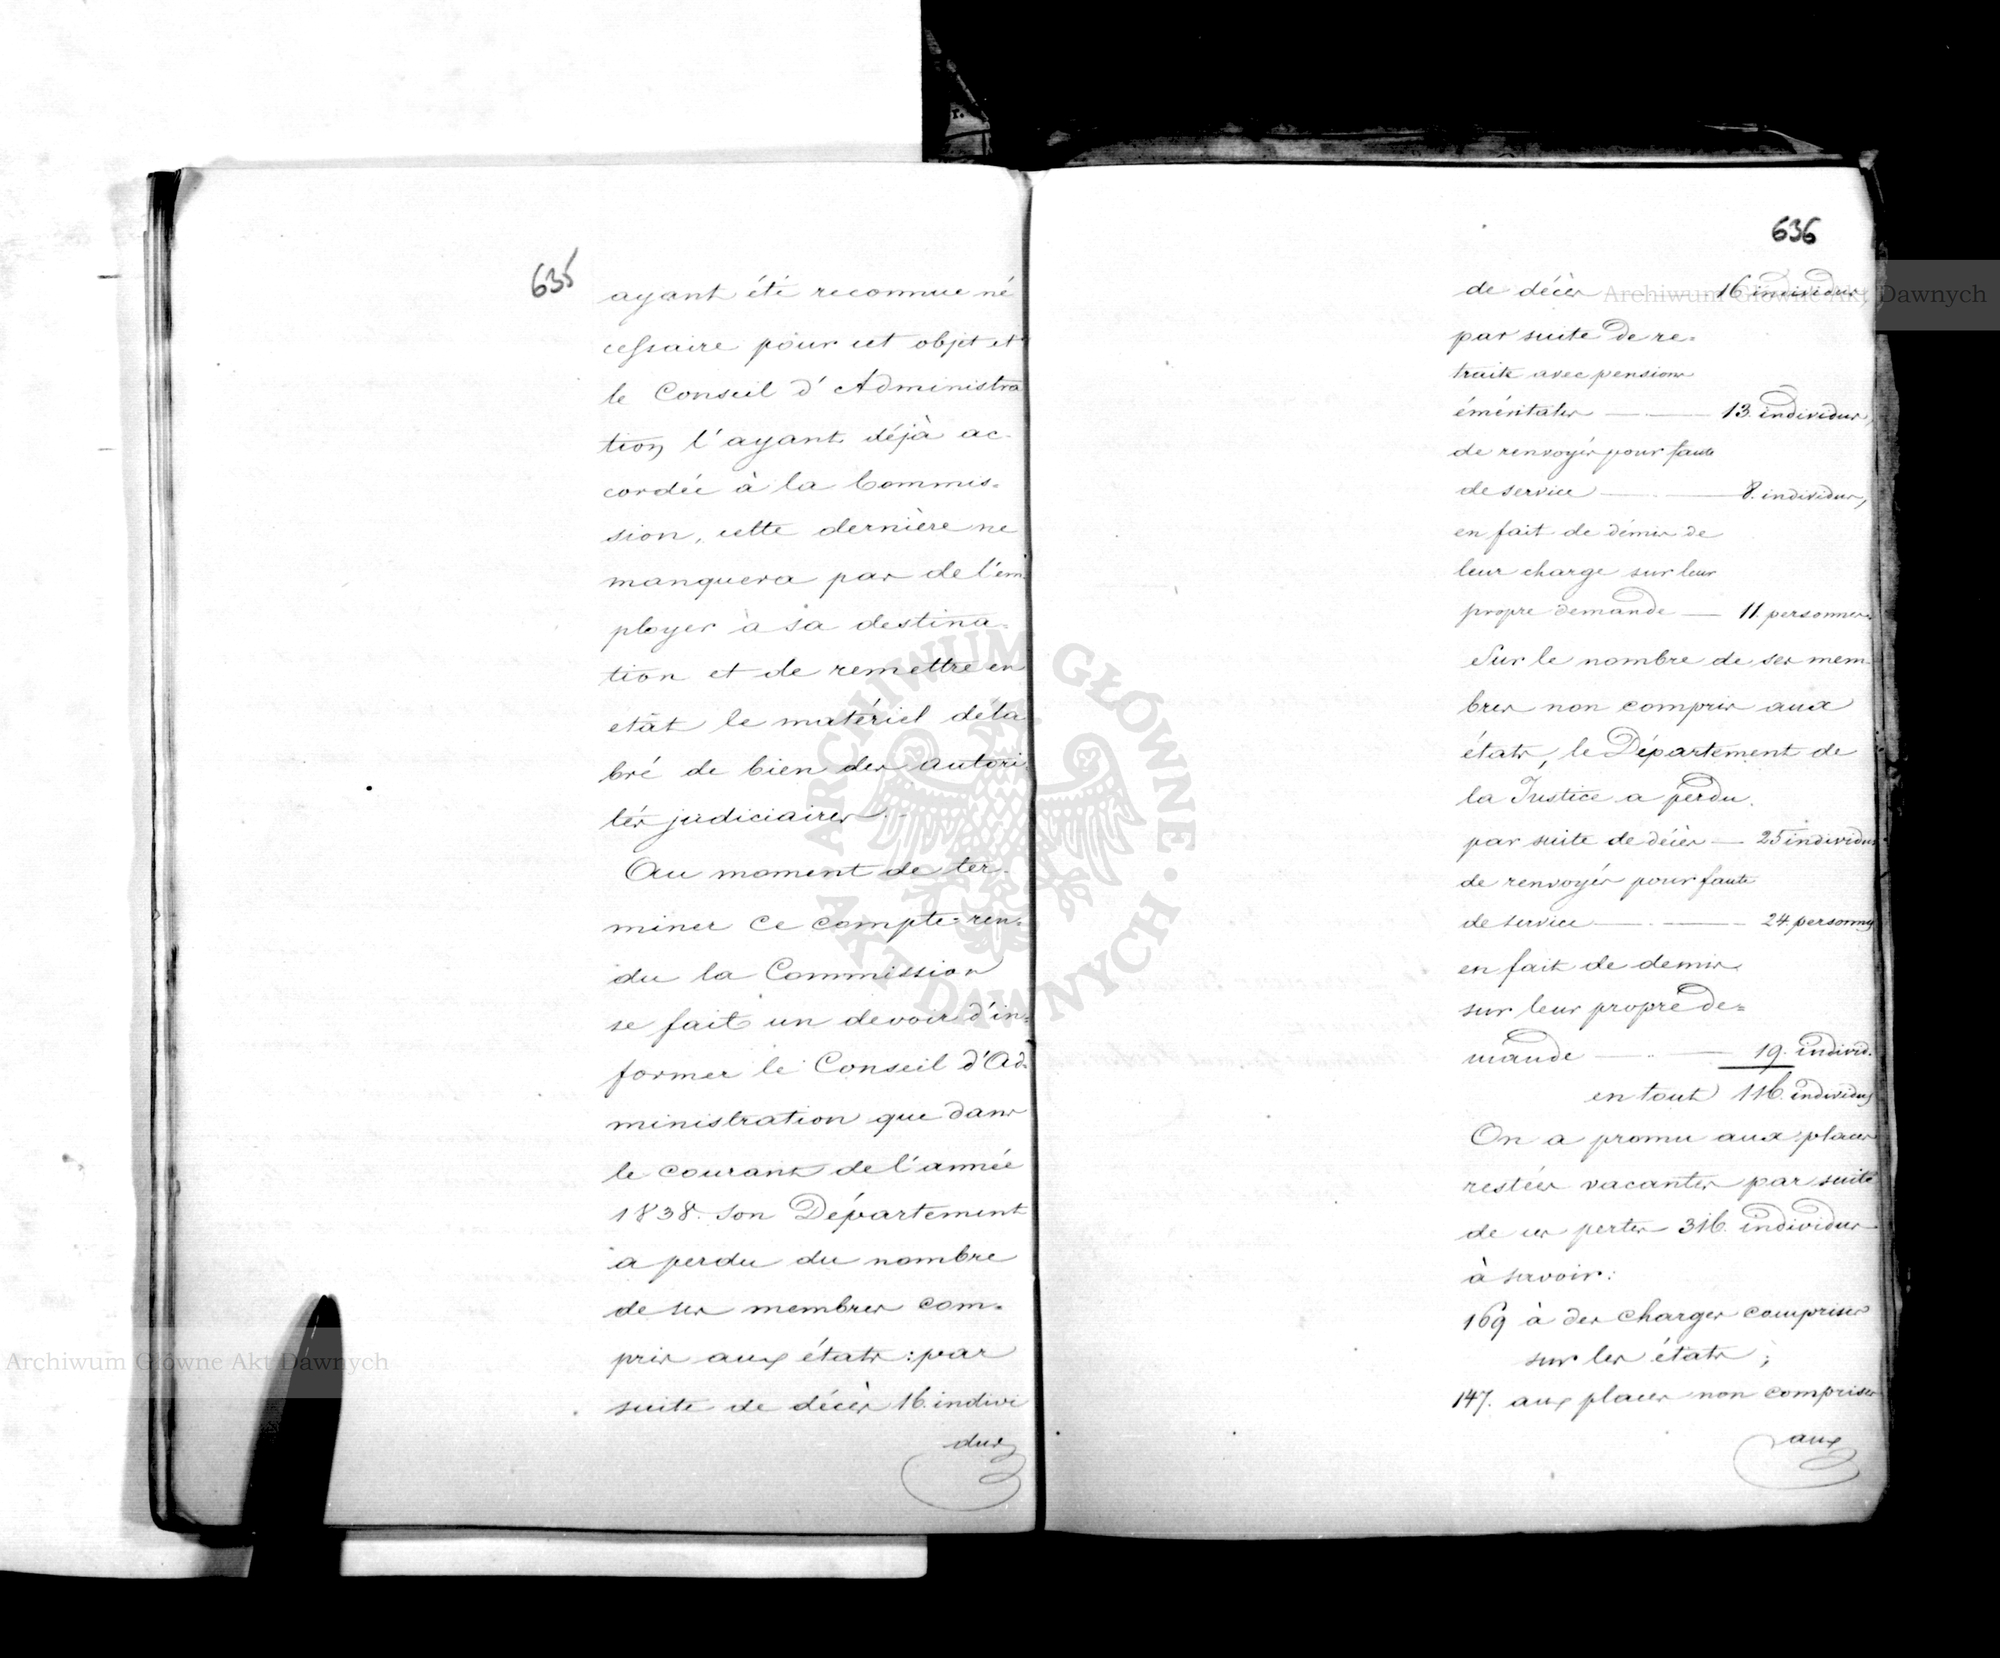 635
ayant été reconnue né
cessaire pour cet objet et
le Conseil d'Administra
tion, l'ayant déjà ac-
cordée à la Commis-
sion, cette dernière ne
manquera pas de l'em-
ployer à sa destina-
tion et de remettre en
etât le matériel déla
bré de bien des autori-
tés judiciaires.-
Au moment de ter-
miner ce compte-ren-
du la Commission
se fait un devoir d'in-
former le Conseil d'Ad-
ministration que dans
le courant de l'année
1838. son Département
a perdu du nombre
de ses membres com-
pris aux états: par
suite de décès 16. indivi
dus
636
de décès 16 individus,
par suite de re-
traite avec pensions
éméritales 13. individus,
de renvoyés pour faute
de service 8. individus,
en fait de démis de
leur charge sur leur
propre demande 11. personnes.
Sur le nombre de ses mem-
bres non compris aux
états, le Département de
la Justice a perdu.
par suite de décès 25 individus
de renvoyés pour faute
de service 24. personnes
en fait de demis
sur leur propre de-
mande 19. individ.
en tout 116. individus
On a promu aux places
restées vacantes par suite
de ces pertes 316. individus
à savoir:
169 à des charges comprises
sur les états;
147. aux places non comprises
aux
Archiwum Główne Akt Dawnych
Archiwum Główne Akt Dawnych
ARCHIWUM GŁÓWNE AKT DAWNYCH